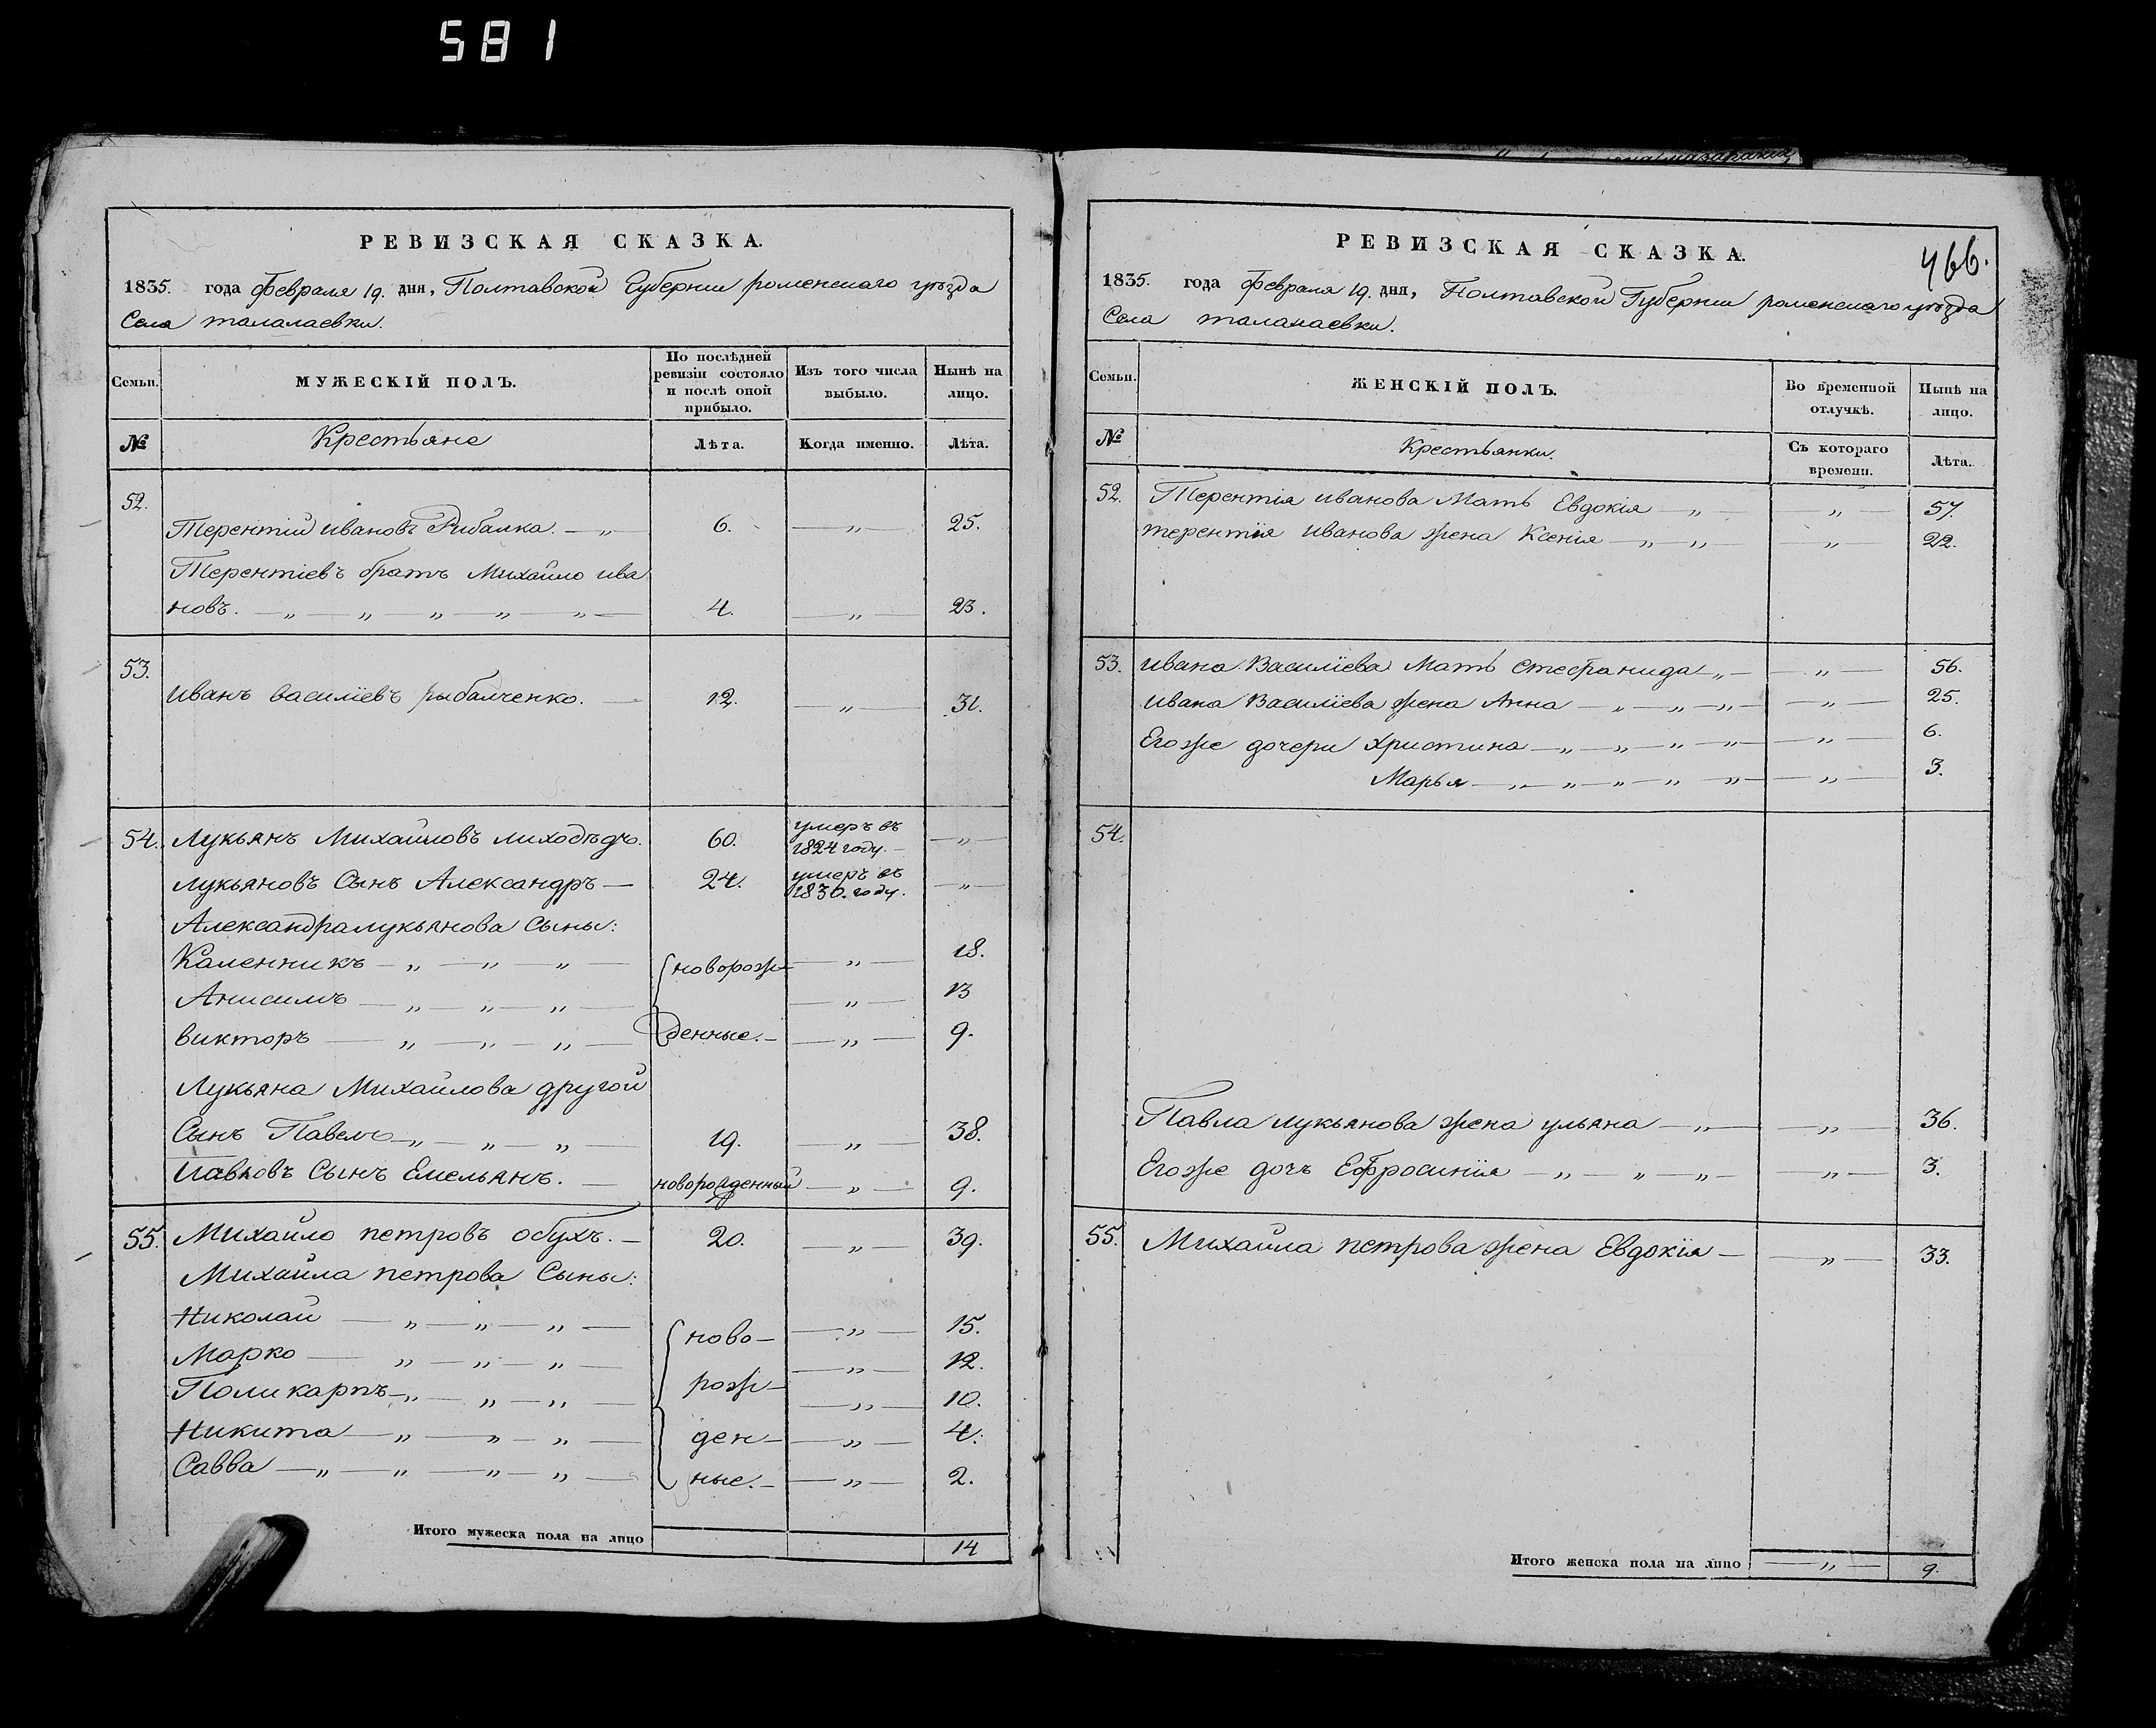 581
РЕВИЗСКАЯ СКАЗКА.
1835. года Февраля 19. дня, Полтавской Губернии роменскаго уѣзда
Села талалаевки.
Семьи. МУЖЕСКІЙ ПОЛЪ. По послѣдней ревизіи состояло и послѣ оной прибыло. Изъ того числа выбыло. Нынѣ на лицо.
№ Крестьяне Лѣта. Когда именно. Лѣта.
52.
Терентій ивановъ Рибалка. — „ 6. — „ — 25.
Терентіевъ братъ Михайло ива
новъ. — „ — „ — „ — „ — „ — 4. — „ — 23.
53.
иванъ василіевъ рыбалченко. — 12. — „ — 31.
54. Лукьянъ Михайловъ лиходѣдъ. 60. умеръ въ 1824 году. — „ —
лукьяновъ Сынъ Александръ — 24. умеръ въ 1830. году. — „ —
Александра лукьянова Сыны:
Каленникъ — „ — „ — „ — новорож— — „ — 18.
Анисимъ — „ — „ — „ — — „ — 13
викторъ — „ — „ — „ — денные. — — „ — 9.
Лукьяна Михайлова другой
Сынъ Павелъ — „ — „ — „ — 19. — „ — 38.
Павловъ Сынъ Емельянъ. — новорожденный — „ — 9.
55. Михайло петровъ обухъ. — 20. — „ — 39.
Михайла петрова Сыны:
Николай — „ — „ — „ — ново— — „ — 15.
Марко — „ — „ — „ — — „ — 12.
Поликарпъ — „ — „ — „ — рож— — „ — 10.
Никита — „ — „ — „ — ден— — „ — 4.
Савва — „ — „ — „ — „ — ные. — — „ — 2.
Итого мужеска пола на лицо 14
466.
РЕВИЗСКАЯ СКАЗКА.
1835. года Февраля 19. дня, Полтавской Губернии роменскаго уѣзда
Села талалаевки.
Семьи. ЖЕНСКІЙ ПОЛЪ. Во временной отлучкѣ. Нынѣ на лицо.
№ Крестьянки. Съ котораго времени. Лѣта.
52. Терентія иванова Мать Евдокія — „ — — „ — 57.
терентія иванова жена Ксенія — „ — „ — — „ — 22.
53. ивана Василіева Мать Стефанида — „ — — „ — 56.
ивана Василіева жена Анна — „ — „ — „ — — „ — 25.
Егоже дочери Христина — „ — „ — „ — „ — — „ — 6.
Марья — „ — „ — „ — „ — „ — — „ — 3.
54.
Павла лукьянова жена ульяна — „ — — „ — 36.
Егоже дочь Ефросинія — „ — „ — „ — — „ — 3.
55. Михайла петрова жена Евдокія — — „ — 33.
Итого женска пола на лицо — „ — 9.